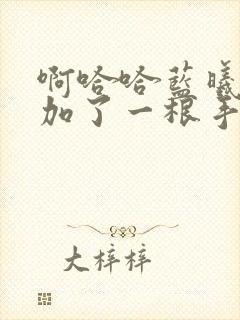 啊哈哈蓝曦
加了一根手
大梓梓